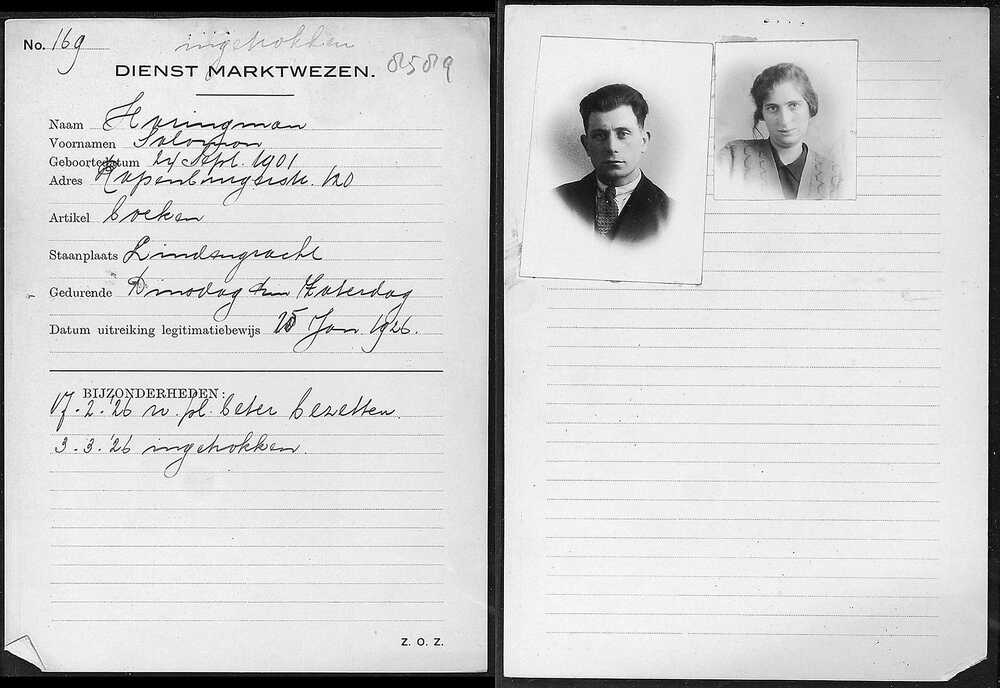 No. 169
ingetrokken
DIENST MARKTWEZEN.
8589
Naam Haringman
Voornamen Salomon
Geboortedatum 24 Sept. 1901
Adres Rapenburgerstr. 120
Artikel boeken
Staanplaats Lindengracht
Gedurende Dinsdag en Zaterdag
Datum uitreiking legitimatiebewijs 15 Jan 1926.
BIJZONDERHEDEN:
17-2-'26 v. pl. beter bezetten.
3-3-'26 ingetrokken.
Z. O. Z.